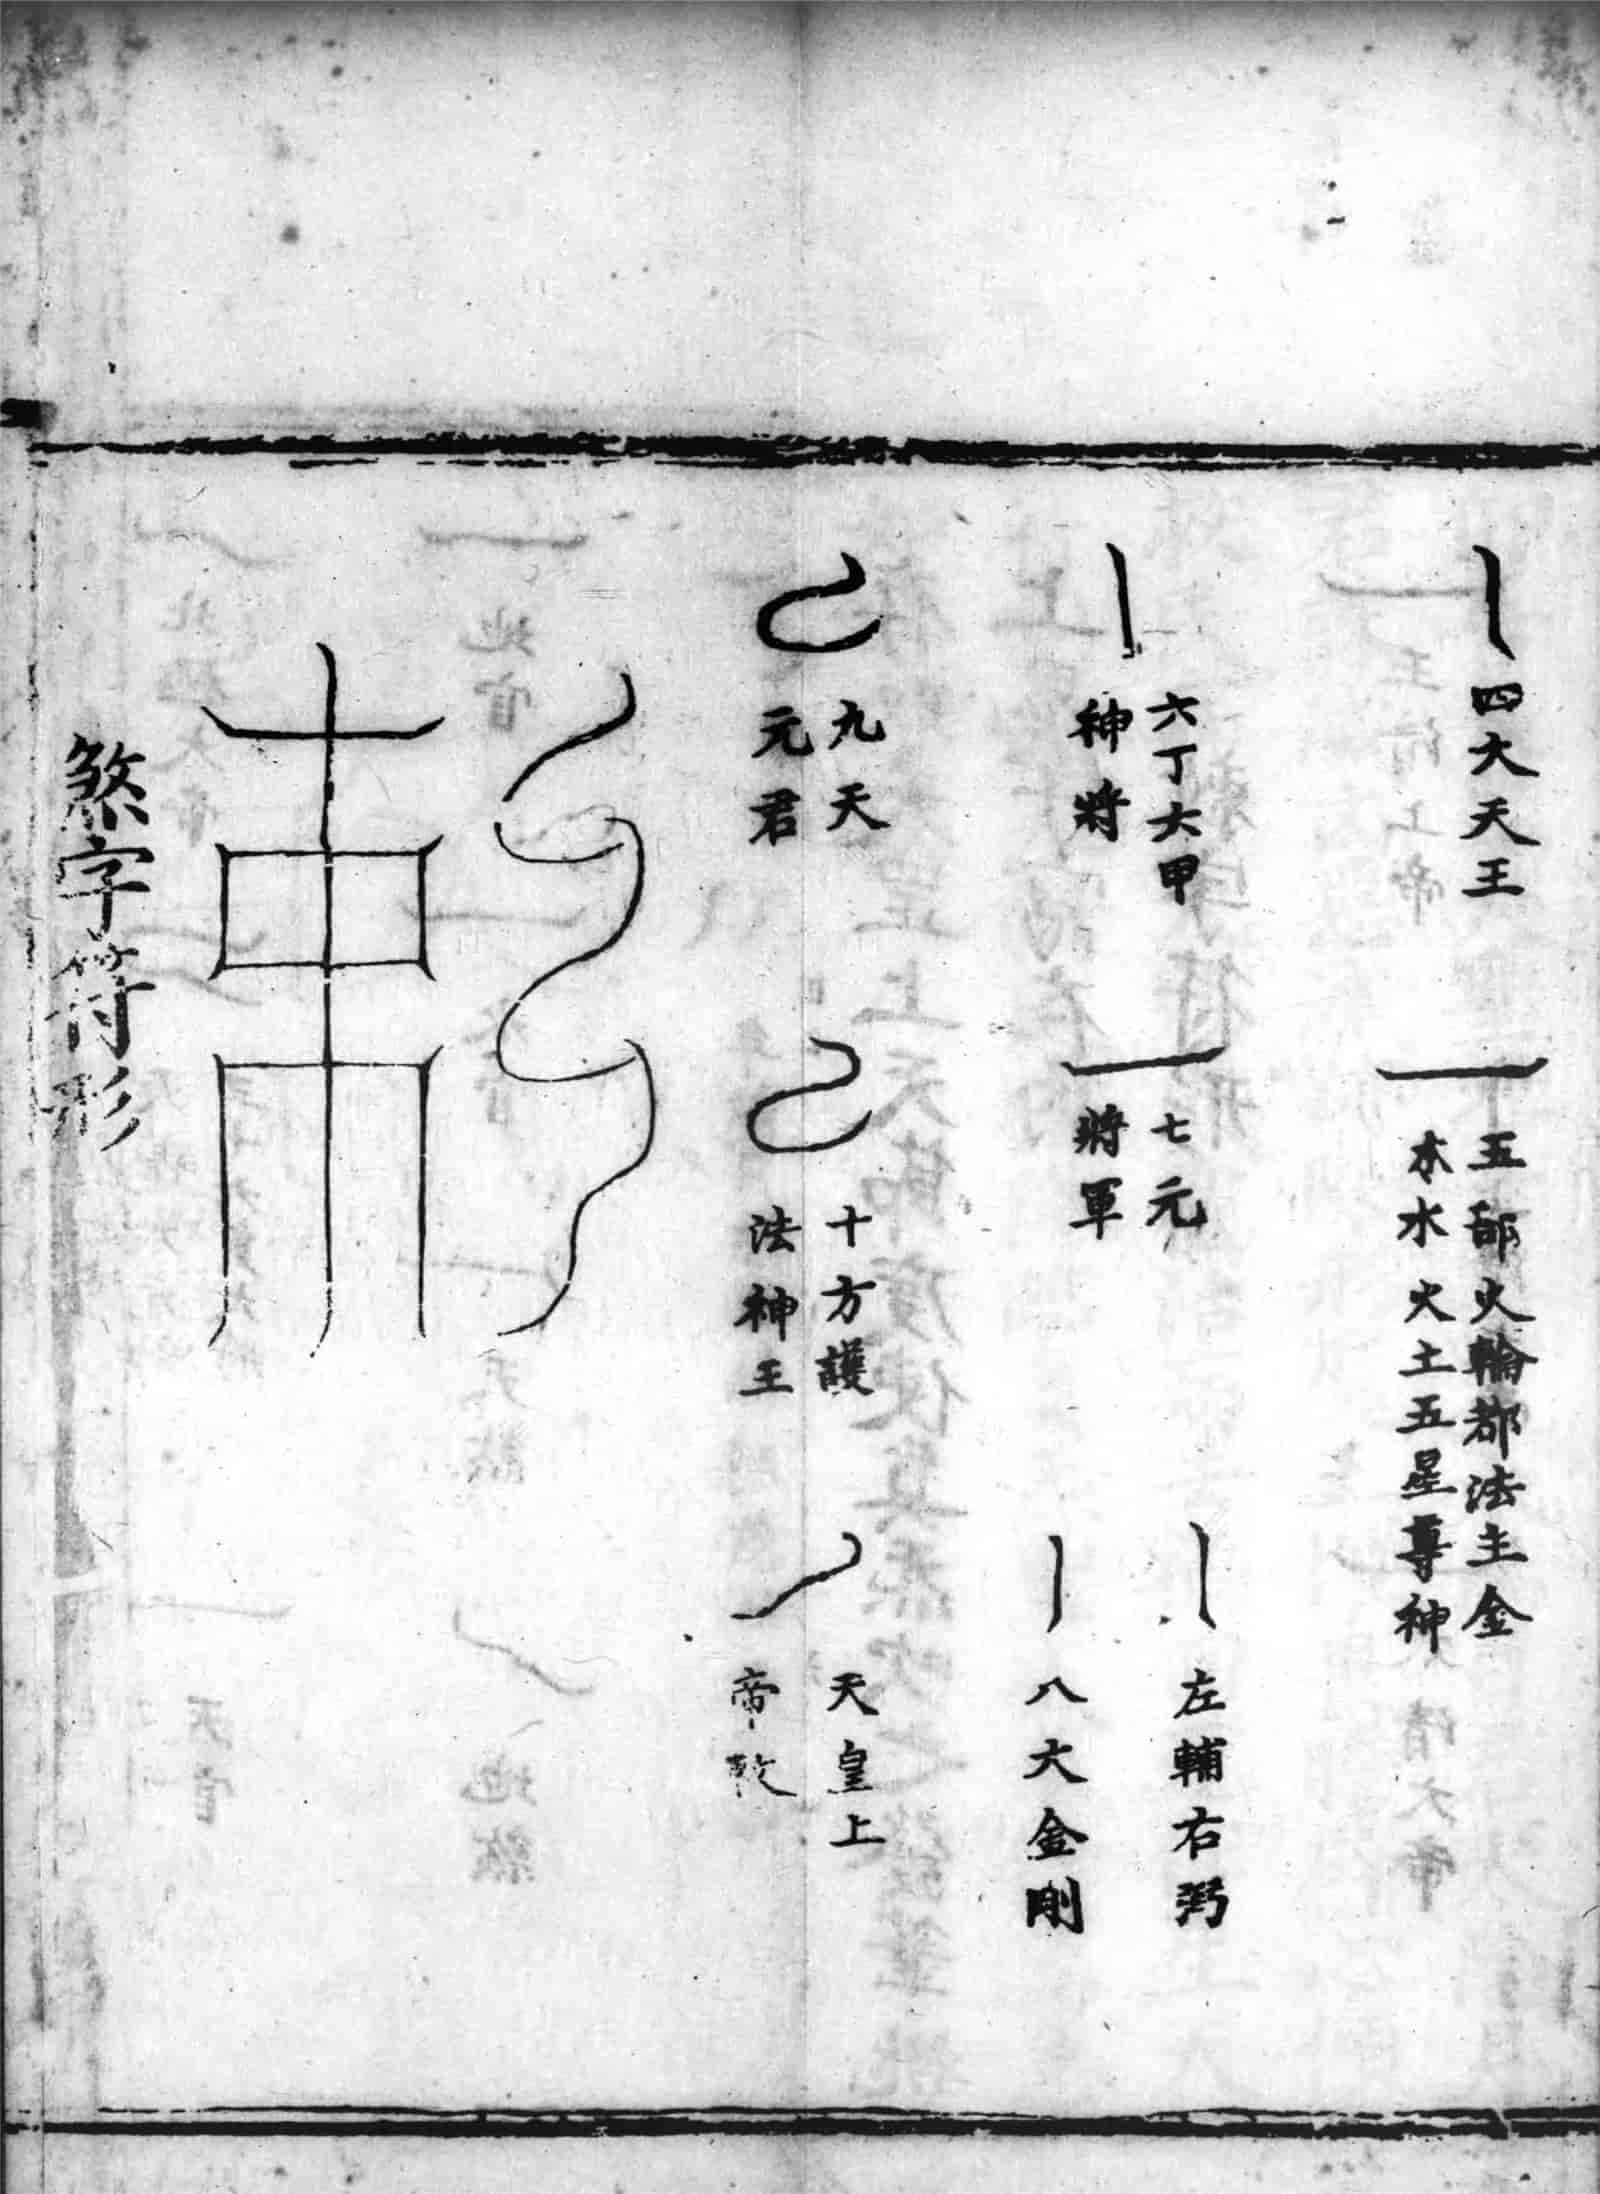 四大天王
五部火輪都法主金
木水火土五星尊神
六丁六甲
神將
七元
將軍
左輔右弼
八大金剛
九天
元君
十方護
法神王
天皇上
帝敕
煞字符形